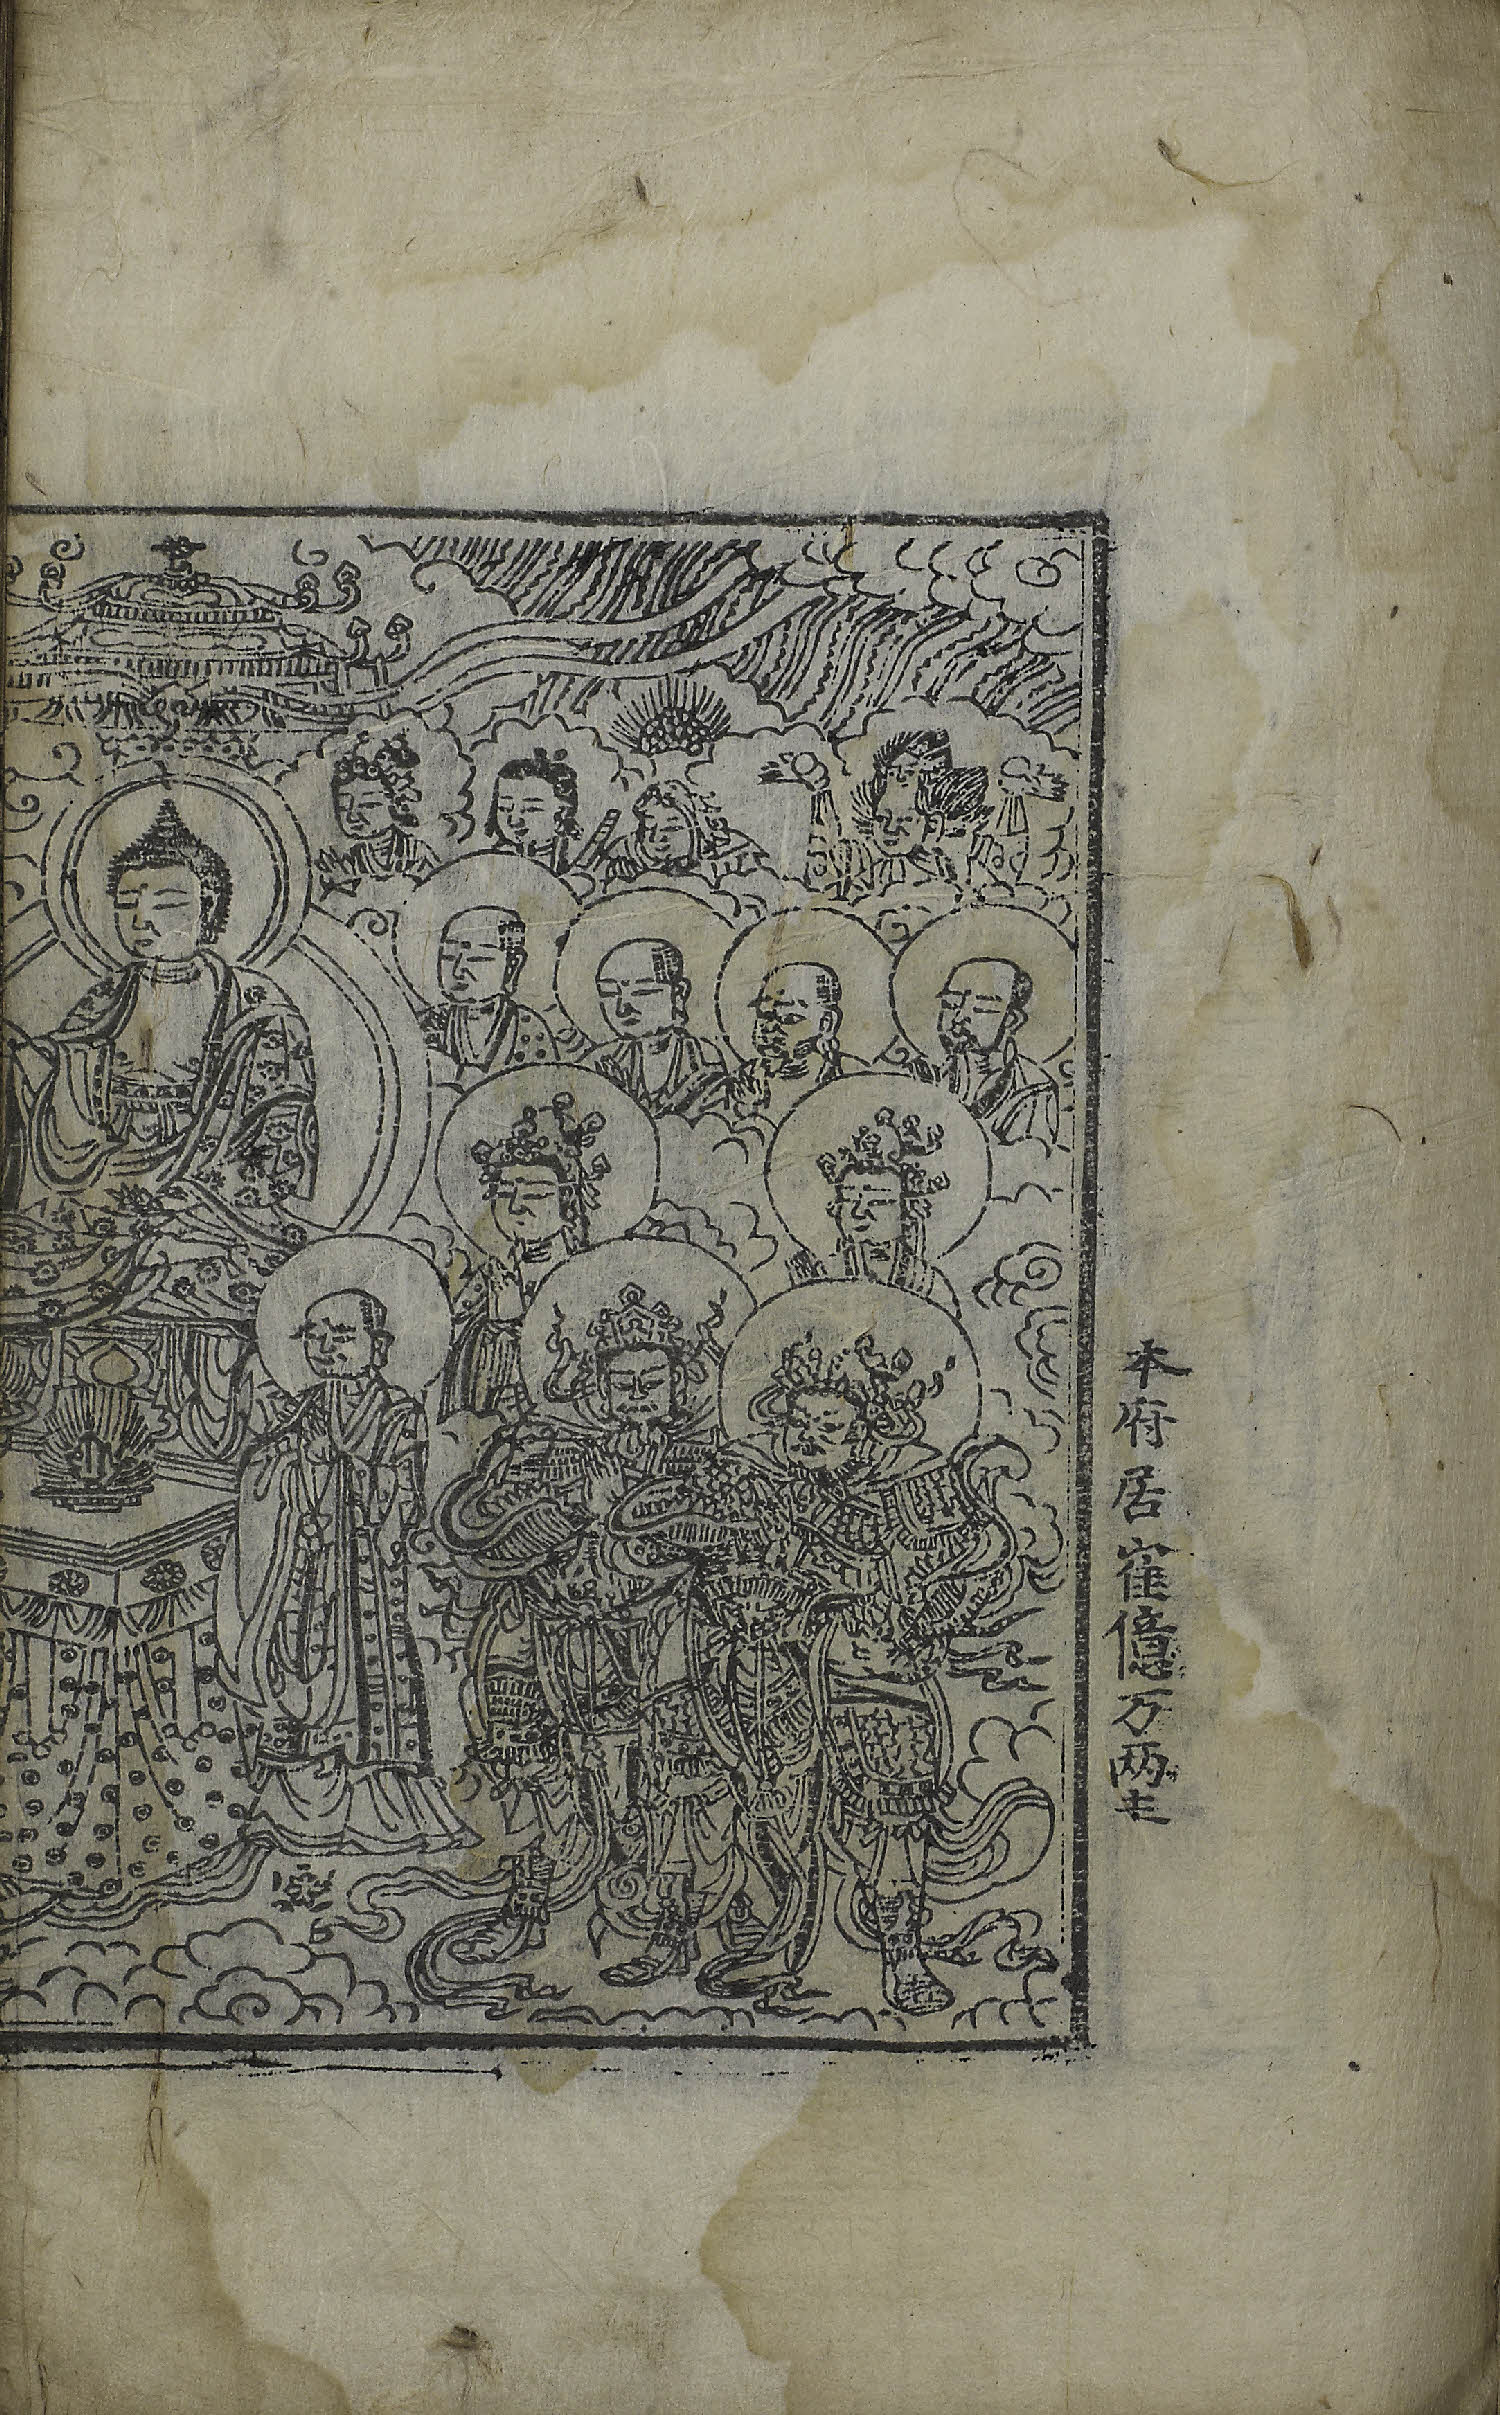 本府居崔億万両主